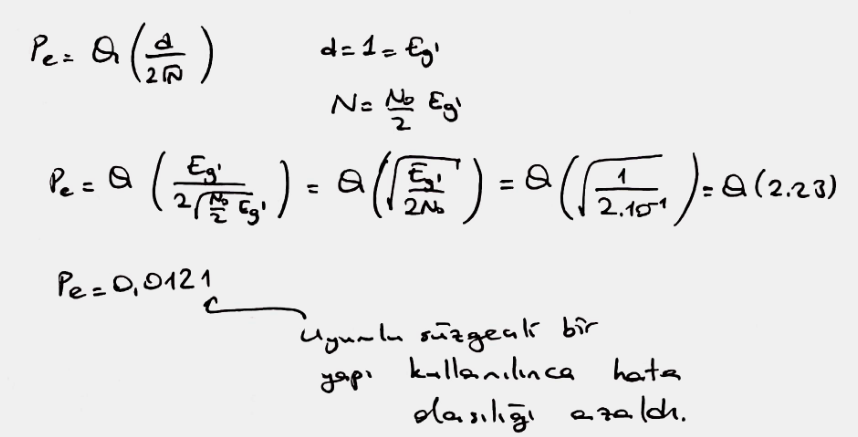 Pe = Q(d / 2√N)    d = 1 = Eg'
N = N₀/2 Eg'
Pe = Q(Eg' / 2√(N₀/2 Eg')) = Q(√(Eg' / 2N₀)) = Q(√(1 / 2.10⁻¹)) = Q(2.23)
Pe = 0,0121
Uyumlu süzgeçli bir
yapı kullanılınca hata
olasılığı azaldı.